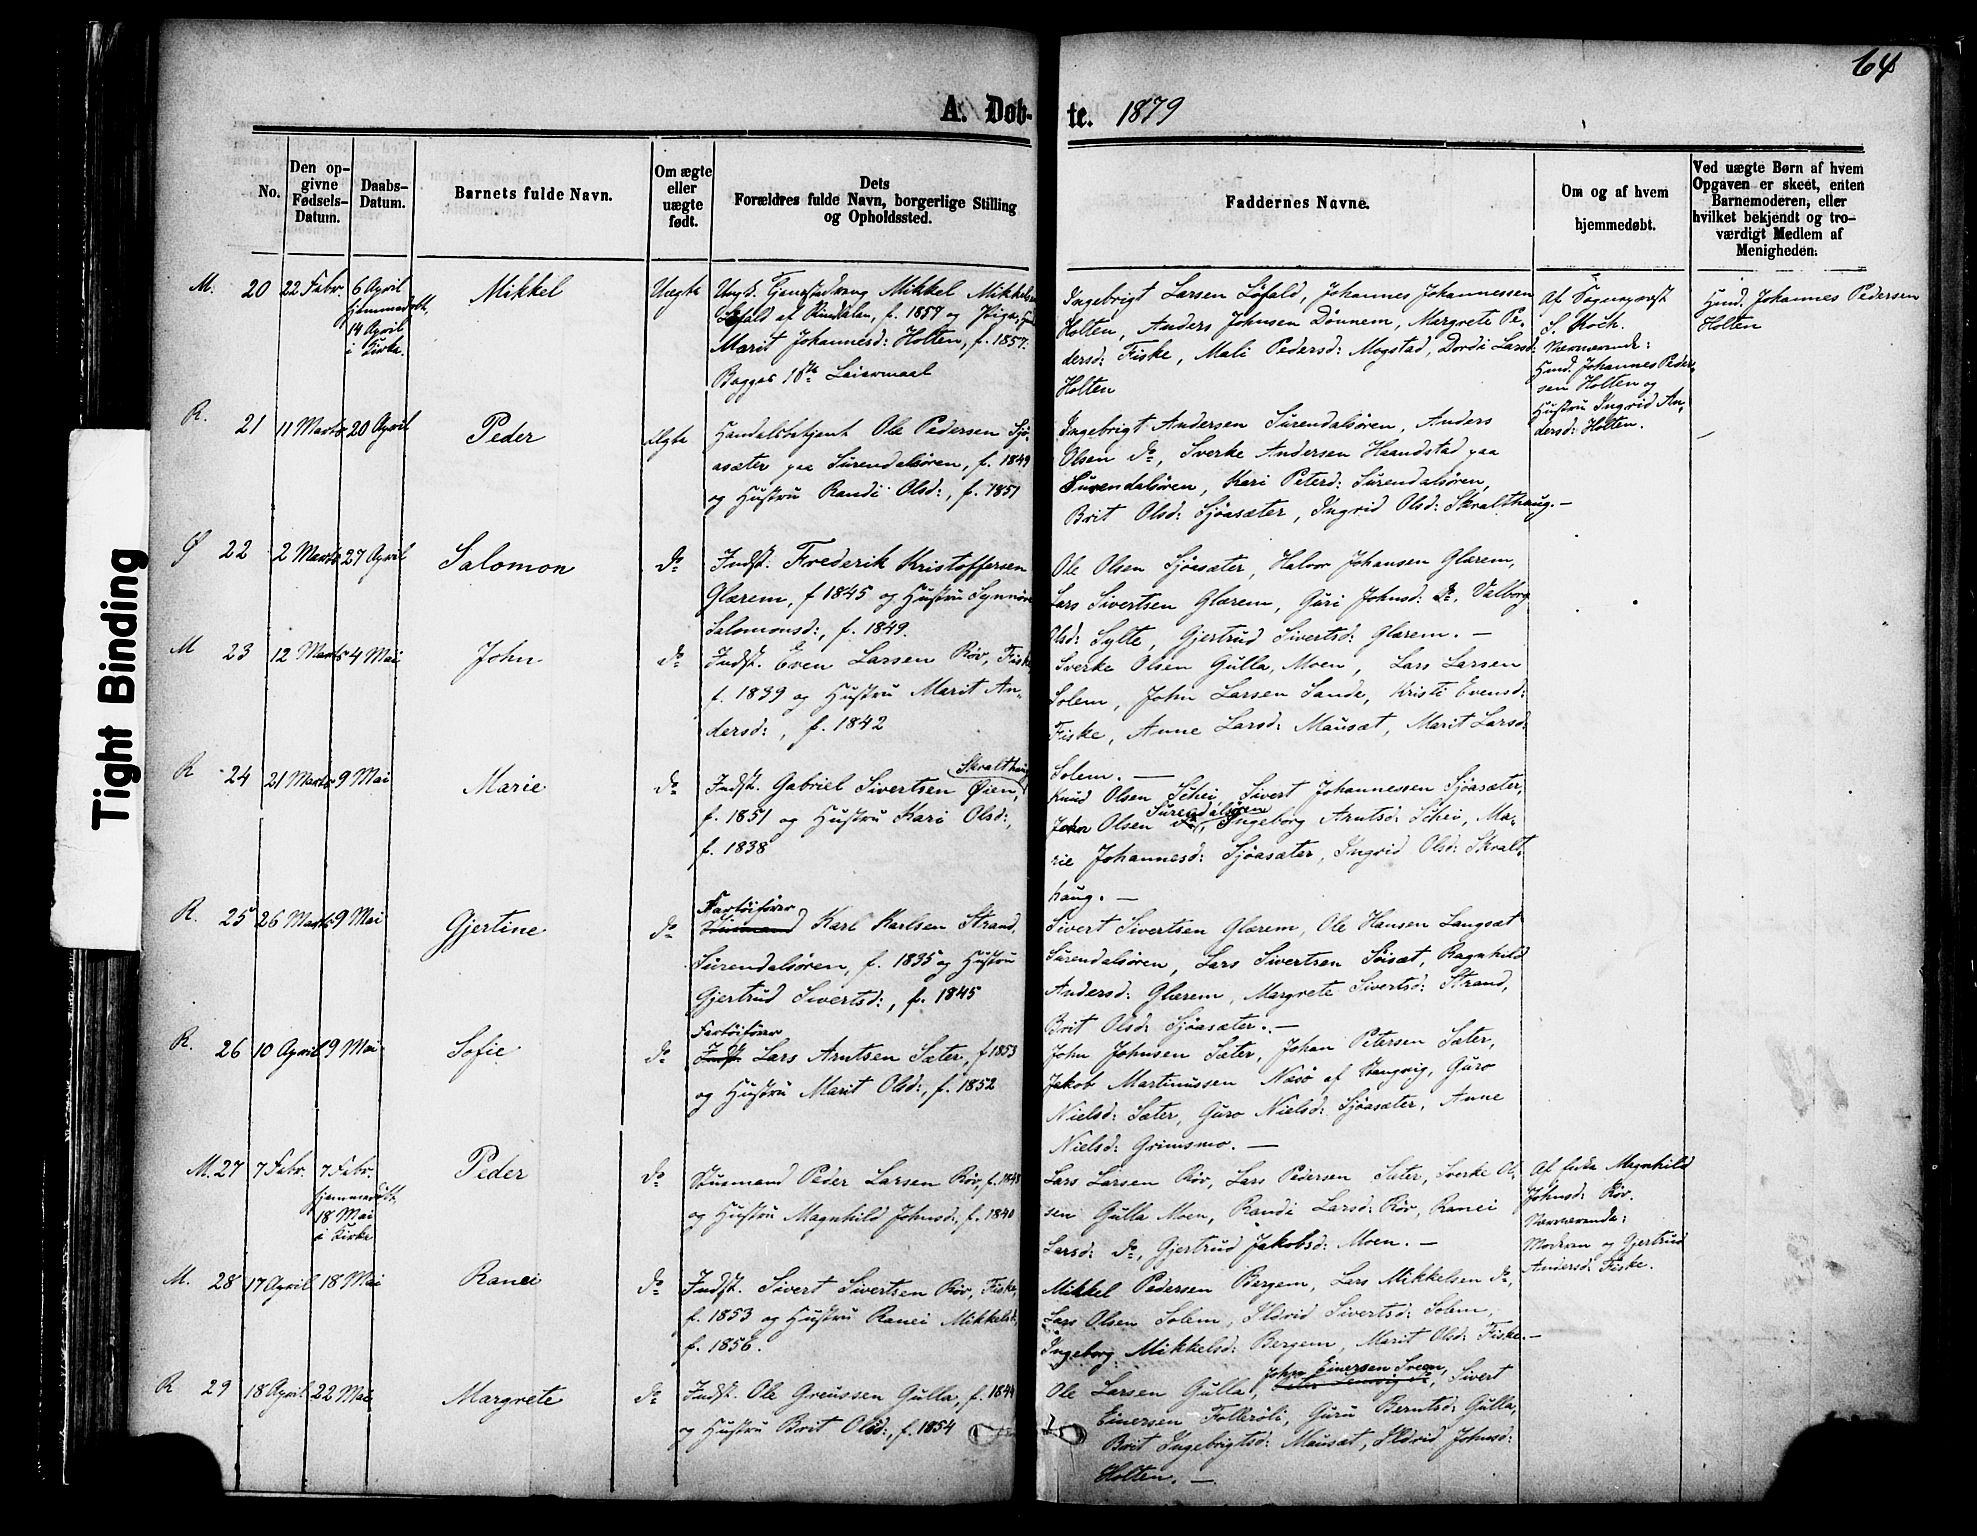 64
A. Døb-
te. 1879
No.
Den op-
givne
Fødsels-
Datum.
Daabs-
Datum.
Barnets fulde Navn.
Om ægte
eller
uægte
født.
Dets
Forældres fulde Navn, borgerlige Stilling
og Opholdssted.
Faddernes Navne.
Om og af hvem
hjemmedøbt.
Ved uægte Børn af hvem
Opgaven er skeet, enten
Barnemoderen, eller
hvilket bekjendt og tro-
værdigt Medlem af
Menigheden.
M. 20
22 Febr.
6 April
hjemmedøbt,
14 April
i Kirke.
Mikkel
Uægte
Ungk. Mikkel Mikkelsen
Løfald af Rindalen, f. 1859 og Pige
Marit Johannesd: Holten, f. 1857.
Begges 1ste Leiermaal
Ingebrigt Larsen Løfald, Johannes Johannessen
Holten, Anders Johnsen Dønnem, Margrete Pe-
dersd: Fiske, Mali Pedersd: Mogstad, Dordi Larsd:
Holten
Af Sognepræst
S. Koch.
Nærværende:
Huusm. Johannes Peder-
sen Holten og
Hustru Ingrid An-
dersd: Holten.
Johannes Pedersen
Holten
R. 21
11 Marts
20 April
Peder
Ægte
Handelsbetjent Ole Pedersen Sjø-
asæter paa Surendalsøren, f. 1849
og Hustru Randi Olsd:, f. 1851
Ingebrigt Andersen Surendalsøren, Anders
Olsen do, Sverke Andersen Haandstad paa
Surendalsøren, Kari Peterd: Surendalsøren,
Brit Olsd: Sjøasæter, Ingrid Olsd: Skralthaug. —
Ø 22
2 Marts
27 April
Salomon
do
Indst. Frederik Kristoffersen
Glærem, f. 1845 og Hustru Synnøve
Salomonsd:, f. 1849.
Ole Olsen Sjøasæter, Halvor Johansen Glærem,
Lars Sivertsen Glærem, Guri Johnsd: do, Valborg
Olsd: Sylte, Gjertrud Sivertsd: Glærem. —
M 23
12 Marts
4 Mai
John
do
Indst. Even Larsen Røv, Fiske
f. 1839 og Hustru Marit An-
dersd:, f. 1842
Sverke Olsen Gulla, Moen, Lars Larsen
Solem, John Larsen Sande, Kristi Evensd:
Fiske, Anne Larsd: Mausæt, Marit Larsd:
Solem. —
R 24
21 Marts
9 Mai
Marie
do
Skralthaug
Indst. Gabriel Sivertsen Øien,
f. 1851 og Hustru Kari Olsd:,
f. 1838
Knud Olsen Schei, Sivert Johannessen Sjøasæter,
Surendalsøren
John Olsen do, Ingeborg Arntsd: Schei, Ma-
rie Johannesd: Sjøasæter, Ingrid Olsd: Skralt-
haug. —
R. 25
26 Marts
9 Mai
Gjertine
do
Fartøifører
Karl Karlsen Strand,
Surendalsøren, f. 1835 og Hustru
Gjertrud Sivertsd:, f. 1845
Sivert Sivertsen Glærem, Ole Hansen Langsæt
Surendalsøren, Lars Sivertsen Søisæt, Ragnhild
Andersd: Glærem, Margrete Sivertsd: Strand,
Brit Olsd: Sjøasæter. —
R. 26
10 April
9 Mai
Sofie
do
Fartøifører
Indst. Lars Arntsen Sæter, f. 1853
og Hustru Marit Olsd:, f. 1852
John Johnsen Sæter, Johan Petersen Sæter,
Jakob Martinussen Næsø af Stangvig, Guro
Nielsd: Sæter, Guro Nielsd: Sjøasæter, Anne
Nielsd: Grimsmo. —
M. 27
7 Febr.
7 Febr.
hjemmedøbt,
18 Mai
i Kirke
Peder
do
Huusmand Peder Larsen Røv, f. 1848
og Hustru Magnhild Johnsd:, f. 1840
Lars Larsen Røv, Lars Pedersen Sæter, Sverke Ol-
sen Gulla Moen, Randi Larsd: Røv, Ranei
Larsd: do, Gjertrud Jakobsd: Moen. —
Af Enke Magnhild
Johnsd: Røv.
Nærværende:
Moderen og Gjertrud
Andersd: Fiske.
M. 28
17 April
18 Mai
Ranei
do
Indst. Sivert Sivertsen Røv, Fiske,
f. 1853 og Hustru Ranei Mikkelsd:
f. 1856.
Mikkel Pedersen Bergem, Lars Mikkelsen do,
Lars Olsen Solem, Ildrid Sivertsd: Solem,
Ingeborg Mikkelsd: Bergem, Marit Olsd: Fiske. —
R 29
18 April
22 Mai
Margrete
do
Indst. Ole Greussen Gulla, f. 1844
og Hustru Brit Olsd:, f. 1854
John Einersen Sveen,
Ole Larsen Gulla, Sivert
Einersen Follerøli, Guru Berntsd: Gulla,
Brit Ingebrigtsd: Mausæt, Ildrid Johnsd:
Holten. —
Tight Binding